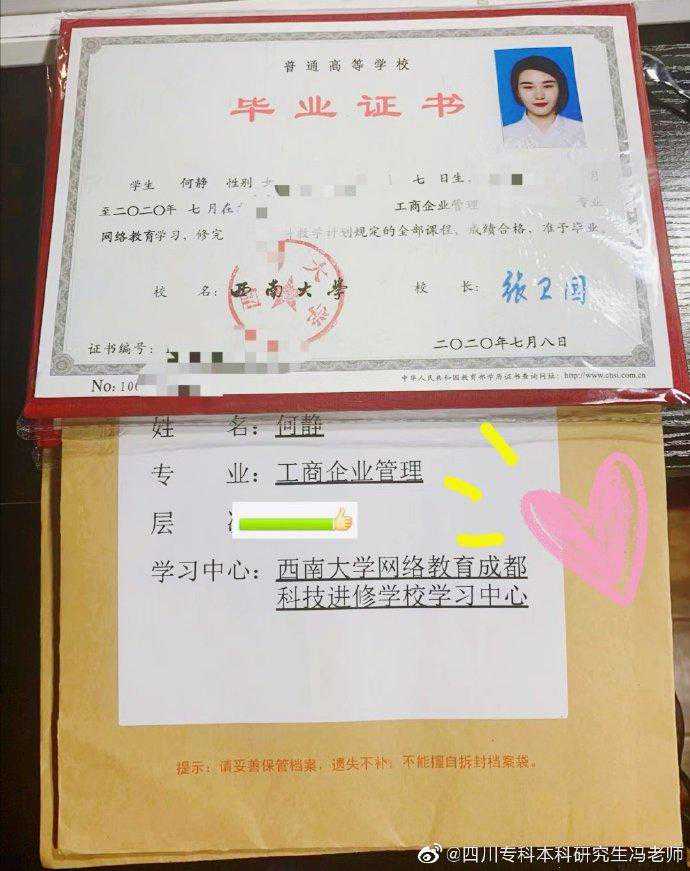 普通高等学校
毕业证书
学生 何静 性别 女 七 日生, 月
至二〇二〇年 七 月在 工商企业管理 专业
网络教育学习, 修完 教学计划规定的全部课程, 成绩合格, 准予毕业。
校 名: 西南大学 校 长: 张卫国
证书编号:
二〇二〇年七月八日
中华人民共和国教育部学历证书查询网址: http://www.chsi.com.cn
No: 10
姓 名: 何静
专 业: 工商企业管理
层
学习中心: 西南大学网络教育成都
科技进修学校学习中心
提示: 请妥善保管档案, 遗失不补, 不能擅自拆封档案袋。
@四川专科本科研究生冯老师